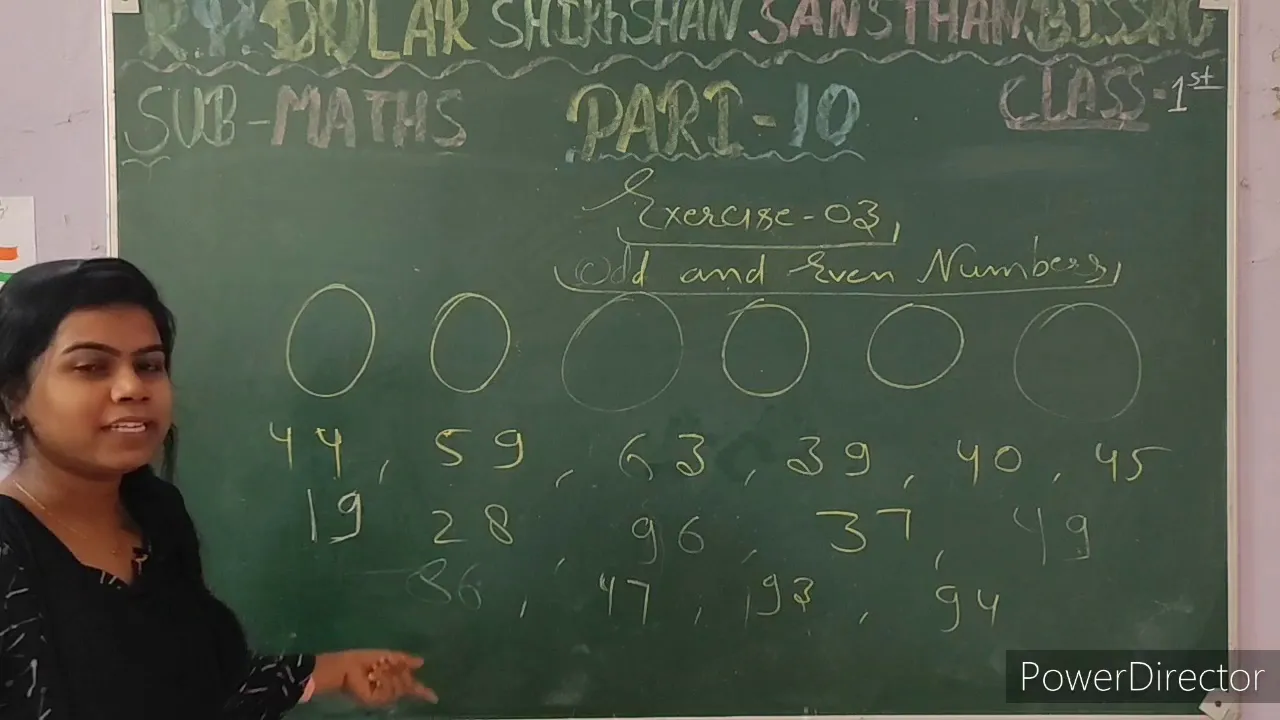 DULAR SHIKhSHAN SANSTHAN BISSAU
SUB-MATHS PART-10 CLASS-1st
Exercise-03
Odd and Even Numbers
44, 59, 63, 39, 40, 45
19 28, 96, 37, 49
86, 47, 93, 94
PowerDirector